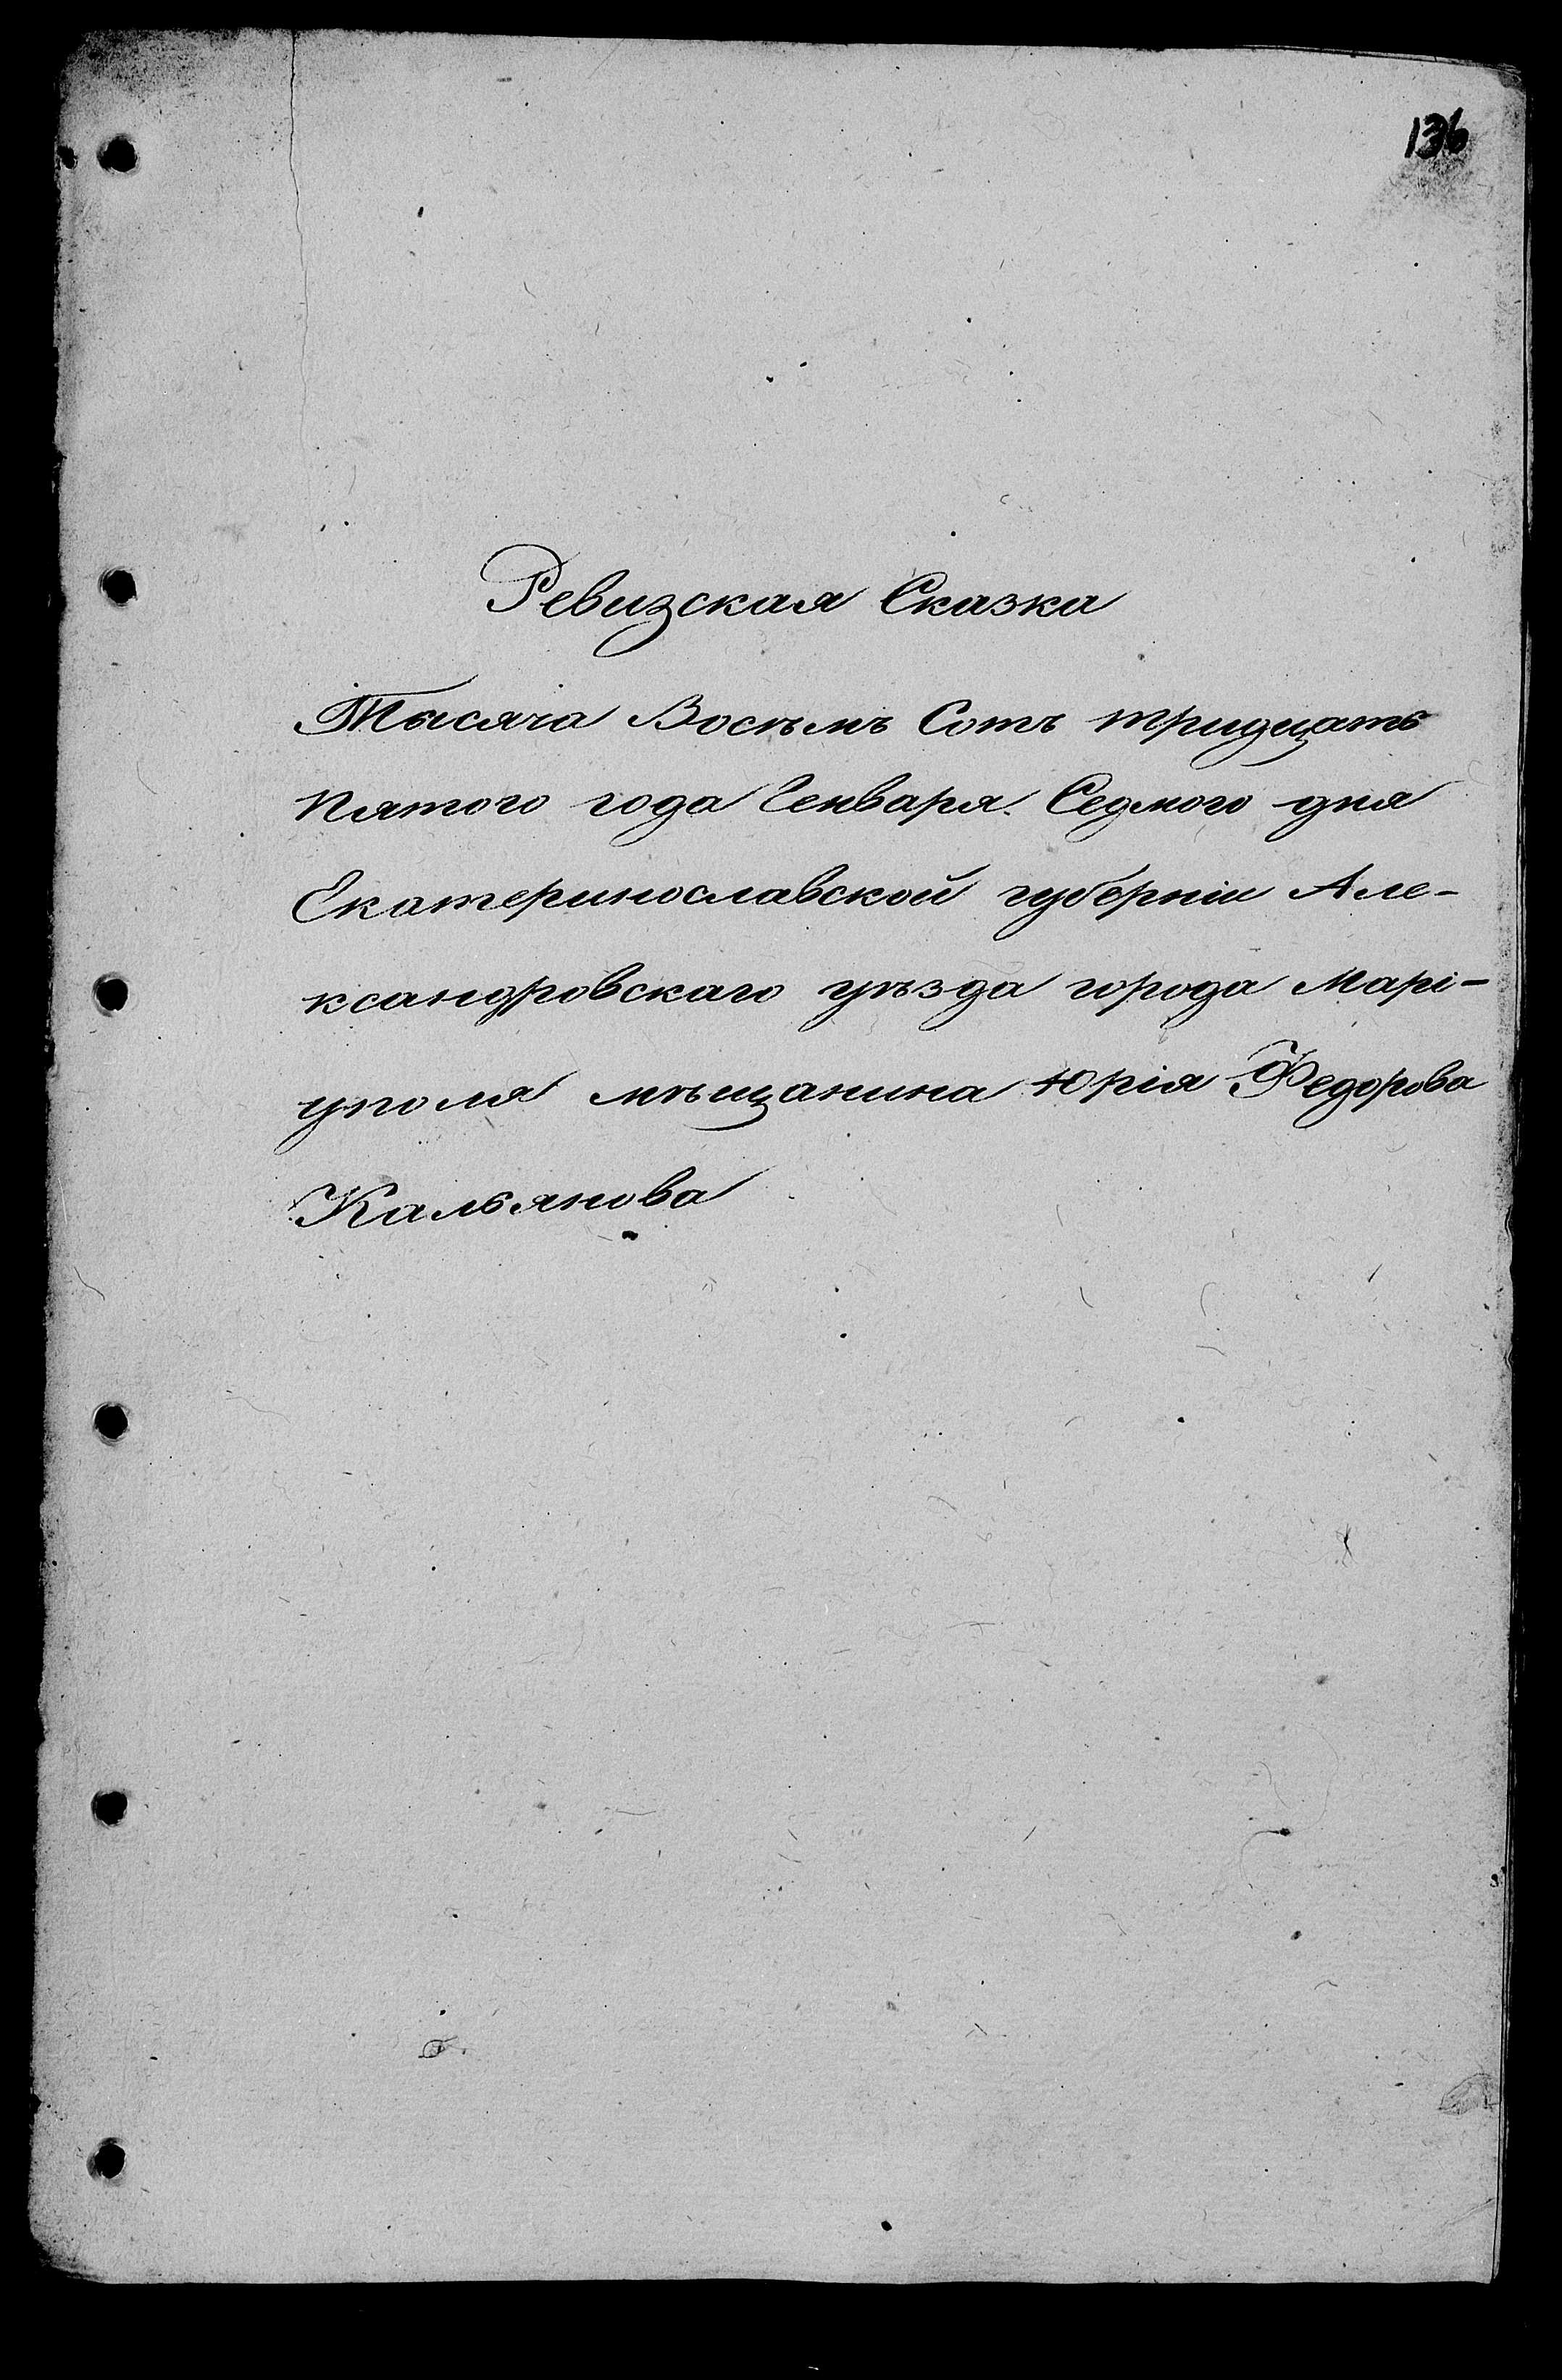 136
Ревизская Сказка
Тысяча Восѣмъ Сотъ тридцать
пятого года Генваря Седмого дня
Екатеринославской губерніи Але-
ксандровскаго уѣзда города Марі-
уполя мѣщанина Юрія Федорова
Кальянова